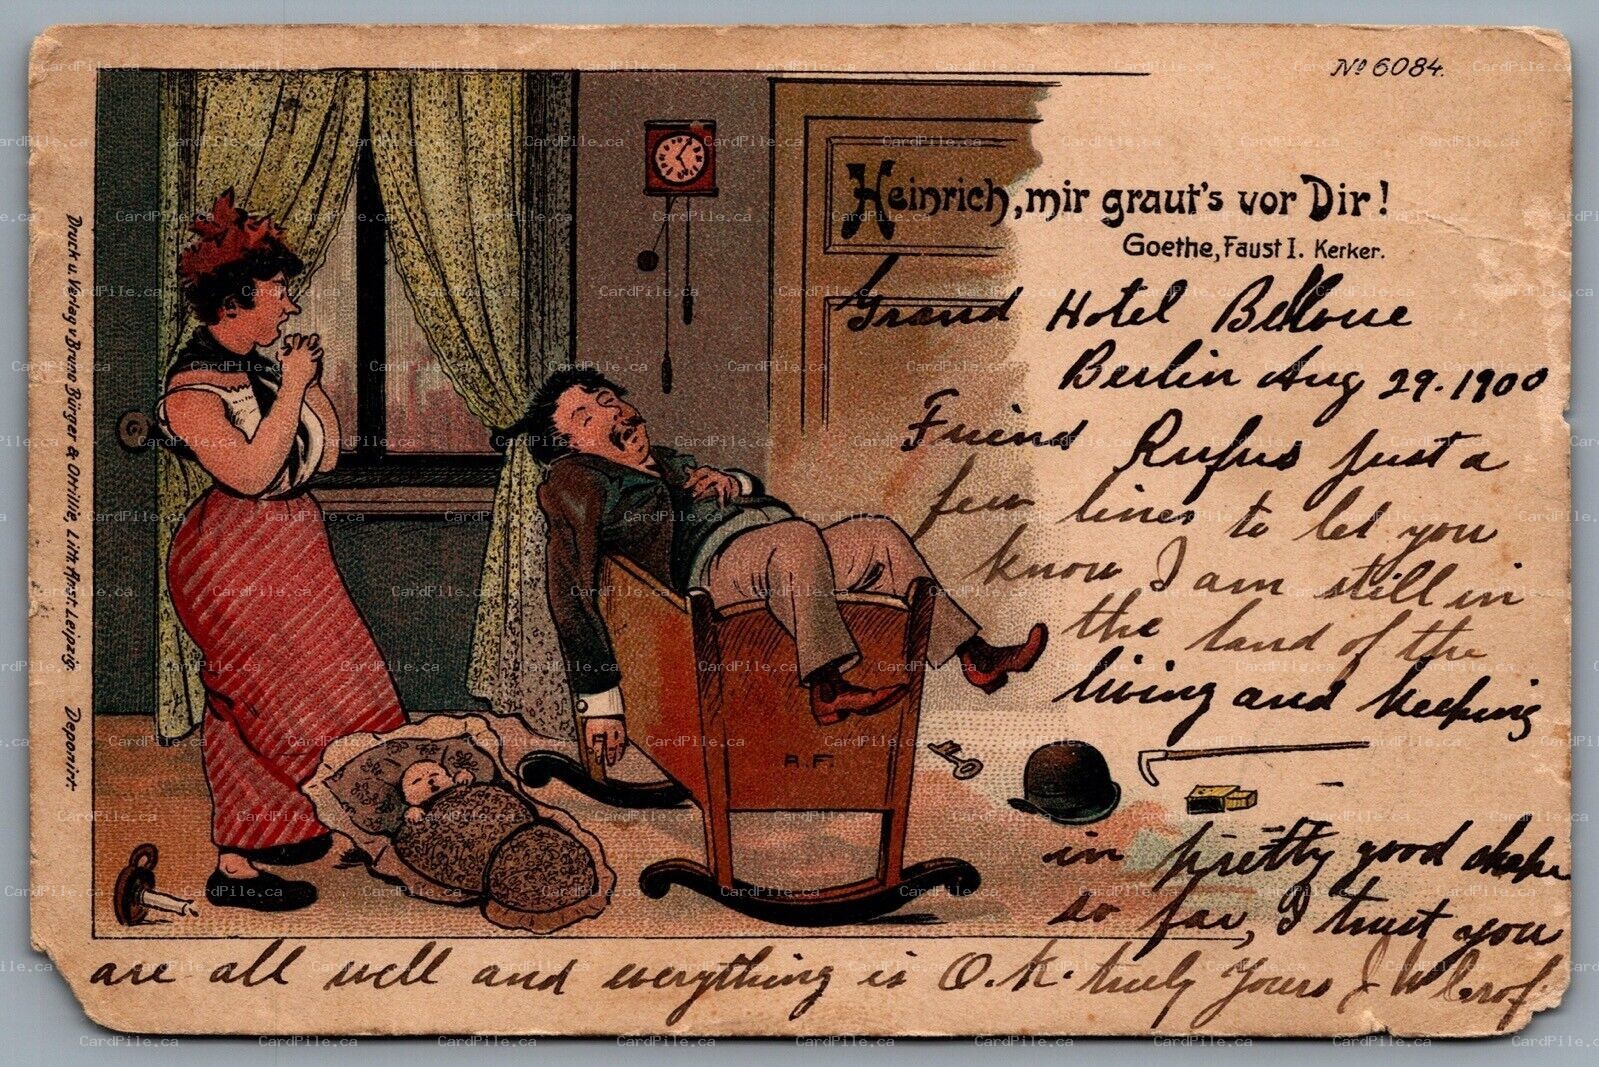 Nº 6084.
Heinrich, mir graut's vor Dir!
Goethe, Faust I. Kerker.
Grand Hotel Bellvue
Berlin Aug 29. 1900
Friend Rufus just a
few lines to let you
know I am still in
the land of the
living and keeping
in pretty good shape
so far, I trust you
are all well and everything is O.K. truly Yours J W
A.F.
Druck u. Verlag v Bruno Bürger & Ottillie, Lith Anst. Leipzig. Deponirt.
CardPile.ca